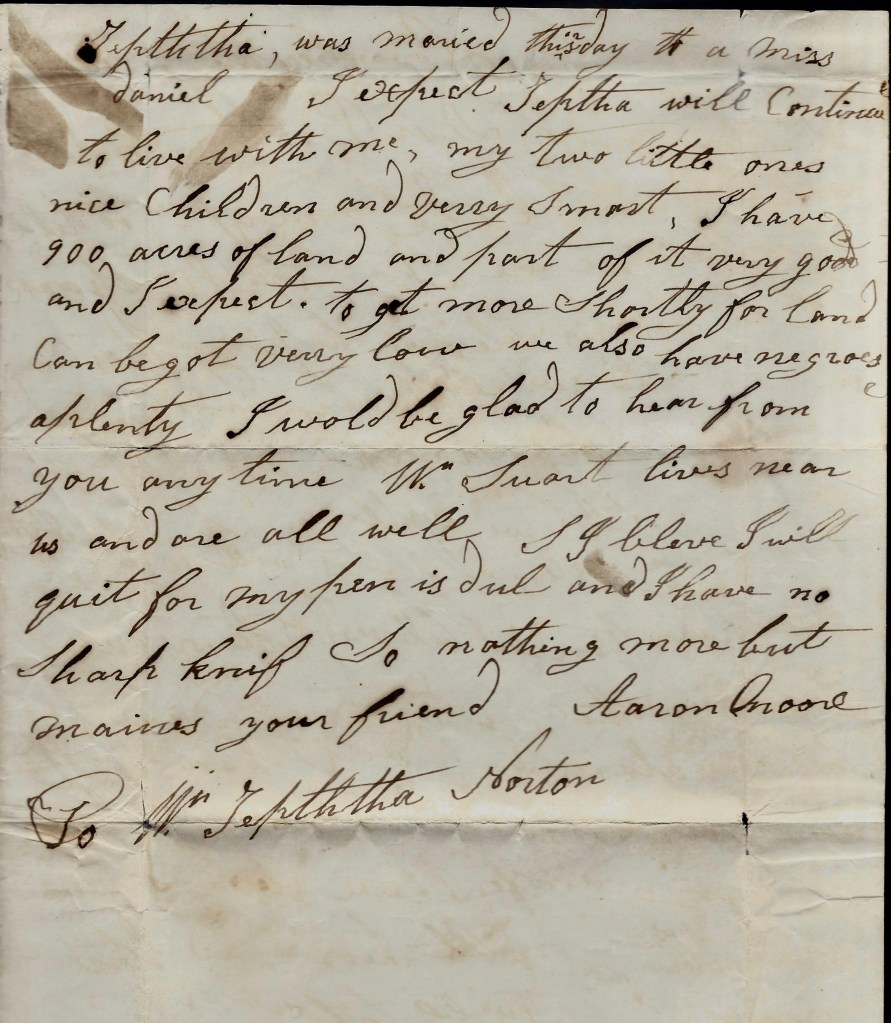 Jepththa, was maried thisday to a miss
daniel I expect Jeptha will Continue
to live with me, my two little ones
nice Children and verry Smart, I have
900 acres of land and part of it very good
and I expect. to get more Shortly for land
Can be got verry low we also have negroes
aplenty I wold be glad to hear from
you any time Wm Suart lives near
us and are all well, I bleve I will
quit for my pen is dul and I have no
Sharp knif So nothing more but
maines your friend Aaron Moore
To Mr Jepththa Norton